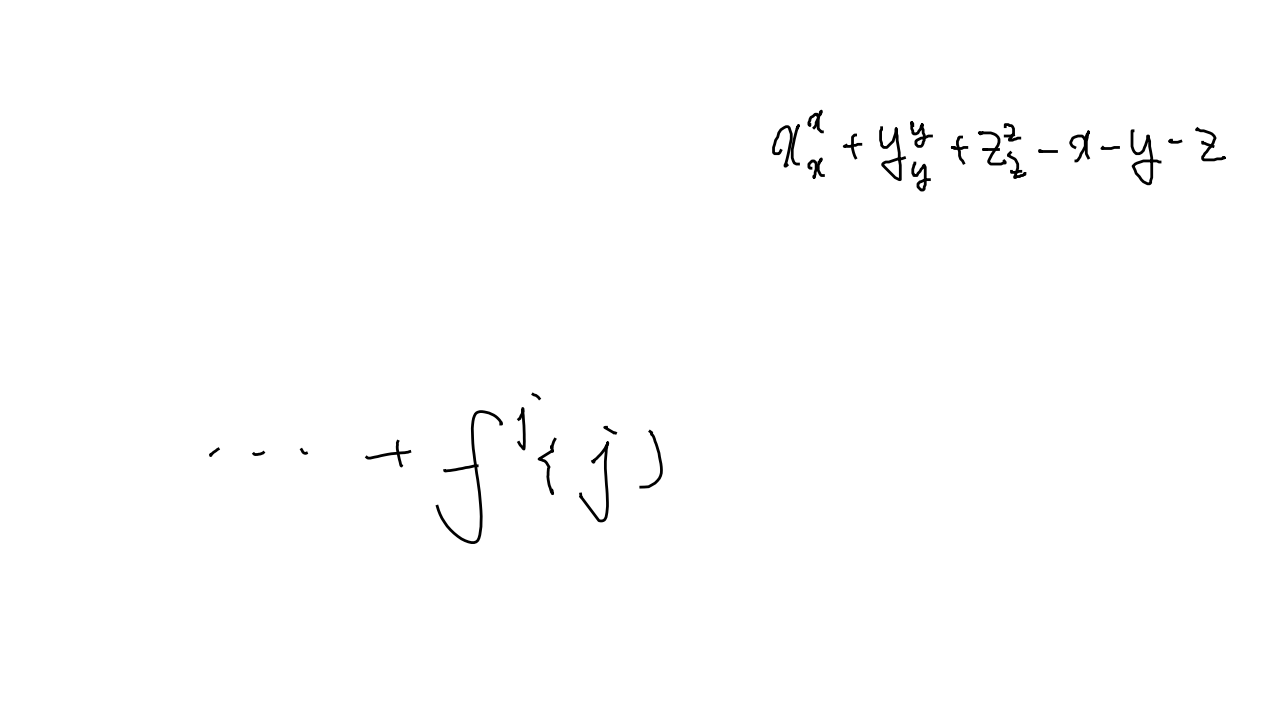 $x_x^x + y_y^y + z_z^z - x - y - z$
$\cdots + f^j \{ j )$